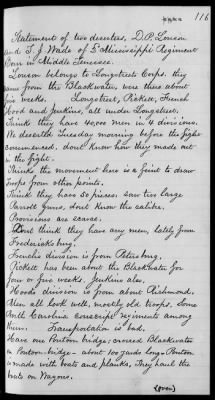 116
Statement of two deserters, D.P. Lowson
and T. J. Wade of 5" Mississippi Regiment
Born in Middle Tennessee.
Lowson belongs to Longstreets Corps. they
came from the Blackwater, were there about
five weeks. Longstreet, Pickett, French
Hood and Jenkins, all under Longstreet.
Think they have 40,000 men in 4 divisions.
We deserted Tuesday morning before the fight
commenced, dont know how they made out
in the fight.
Thinks the movement here is a feint to draw
troops from other points.
Think they have 50 pieces. saw two large
Parrott guns, dont know the calibre.
Provisions are scarce.
Dont think they have any men, lately from
Fredericksburg.
French's division is from Petersburg.
Pickett has been about the Blackwater for
four or five weeks. Jenkins also.
Hoods division is from about Richmond.
Men all look well, mostly old troops. Some
North Carolina conscript regiments among
them. Transportation is bad.
Have one Pontoon bridge; crossed Blackwater
on Pontoon-bridge - about 100 yards long - Pontoon
is made with boats and planks, They haul the
boats on wagons.
(over)